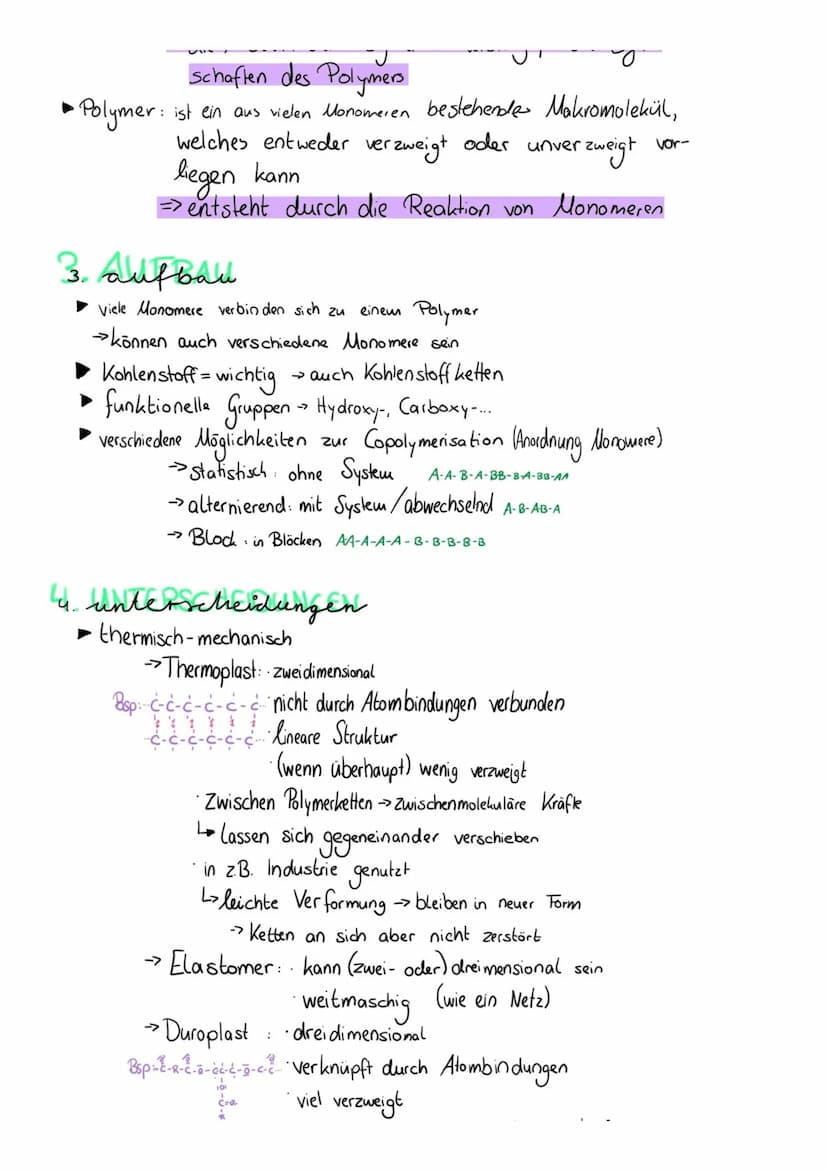 schaften des Polymers
▶ Polymer: ist ein aus vielen Monomeren bestehendes Makromolekül,
welches entweder verzweigt oder unverzweigt vor-
liegen kann
=> entsteht durch die Reaktion von Monomeren
3. AUFBAU
3. aufbau
▶ viele Monomere verbinden sich zu einem Polymer
→ können auch verschiedene Monomere sein
▶ Kohlenstoff = wichtig → auch Kohlenstoffketten
▶ funktionelle Gruppen → Hydroxy-, Carboxy-...
▶ verschiedene Möglichkeiten zur Copolymerisation (Anordnung Monomere)
→ statistisch: ohne System A-A-B-A-BB-B-A-BB-AA
→ alternierend: mit System/abwechselnd A-B-AB-A
→ Block: in Blöcken AA-A-A-A-B-B-B-B-B
4. UNTERSCHEIDUNGEN
4. unterscheidungen
▶ thermisch-mechanisch
→ Thermoplast: · zweidimensional
Bsp: -C-C-C-C-C-C- · nicht durch Atombindungen verbunden
-C-C-C-C-C-C- · lineare Struktur
· (wenn überhaupt) wenig verzweigt
· Zwischen Polymerketten → zwischenmolekuläre Kräfte
↳ lassen sich gegeneinander verschieben
· in z.B. Industrie genutzt
↳ leichte Verformung → bleiben in neuer Form
→ Ketten an sich aber nicht zerstört
→ Elastomer: · kann (zwei- oder) dreidimensional sein
· weitmaschig (wie ein Netz)
→ Duroplast : · dreidimensional
Bsp: · verknüpft durch Atombindungen
· viel verzweigt